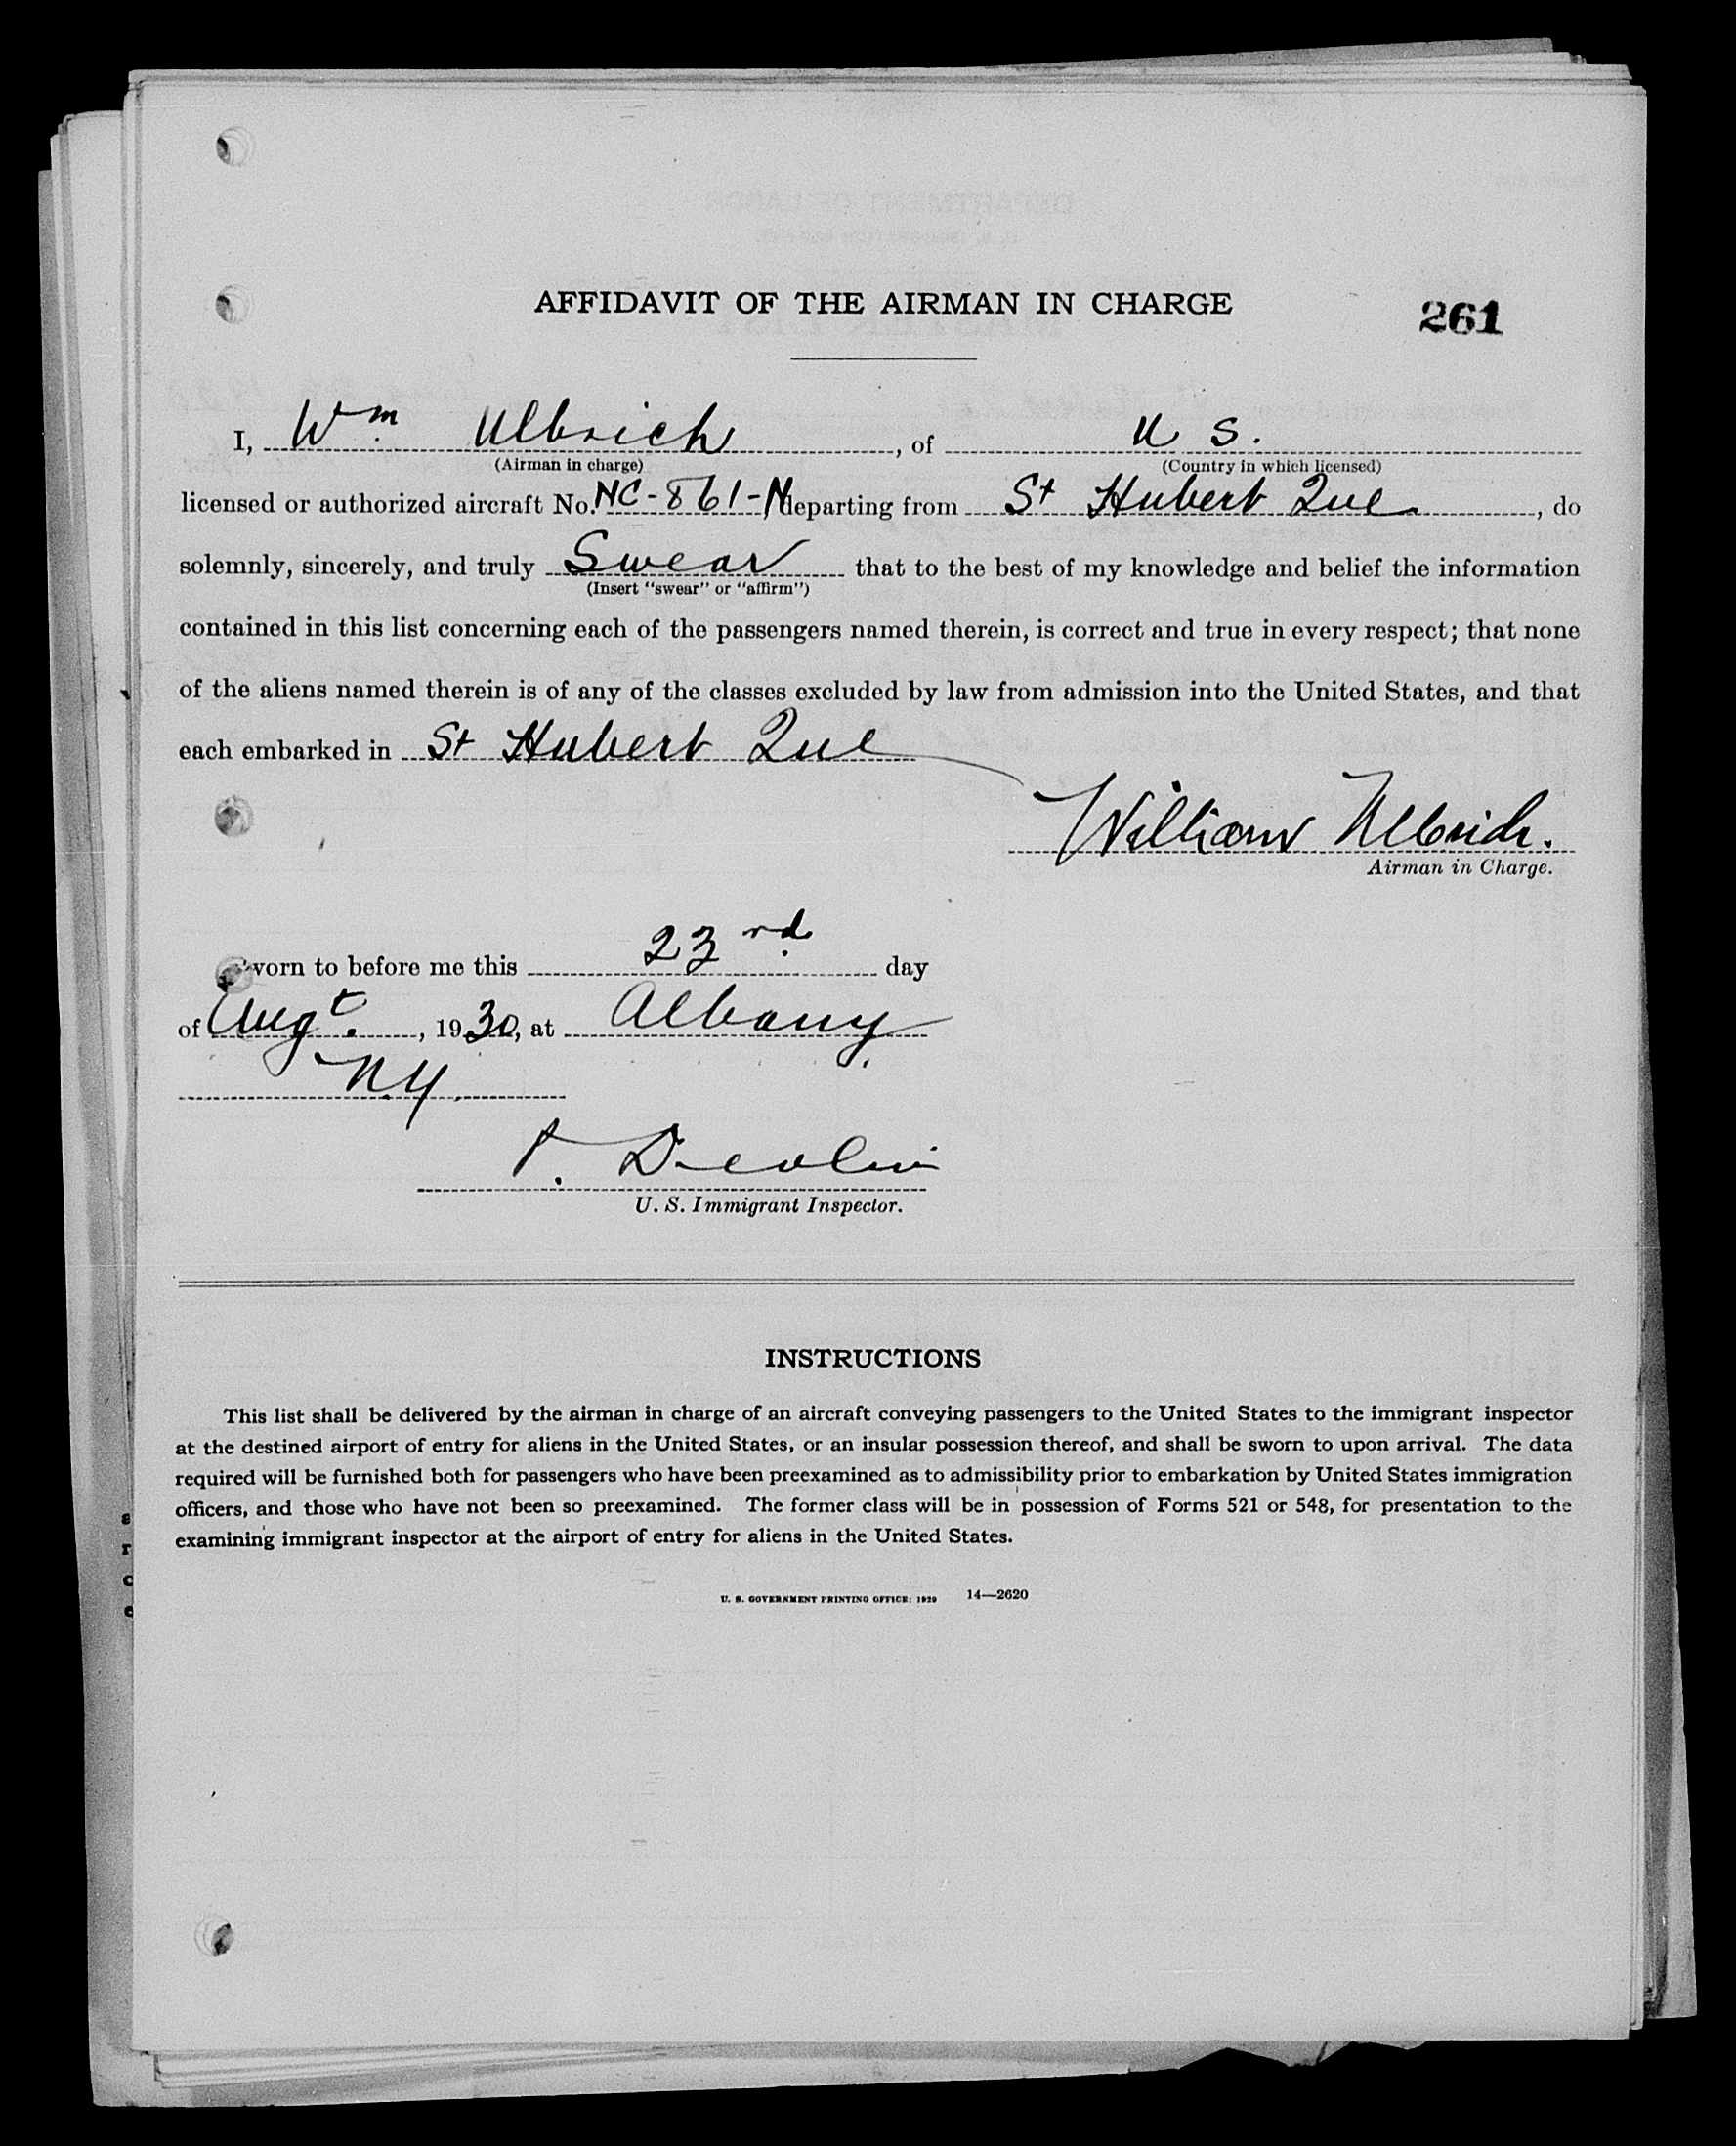 AFFIDAVIT OF THE AIRMAN IN CHARGE
261
I, Wm Ulbrich, of U S.
(Airman in charge) (Country in which licensed)
licensed or authorized aircraft No. NC-861-N, departing from St Hubert Que, do
solemnly, sincerely, and truly Swear that to the best of my knowledge and belief the information
(Insert "swear" or "affirm")
contained in this list concerning each of the passengers named therein, is correct and true in every respect; that none
of the aliens named therein is of any of the classes excluded by law from admission into the United States, and that
each embarked in St Hubert Que
William Ulbrich.
Airman in Charge.
Sworn to before me this 23rd day
of Augt., 1930, at Albany,
N.Y.
P. Devlin
U. S. Immigrant Inspector.
INSTRUCTIONS
This list shall be delivered by the airman in charge of an aircraft conveying passengers to the United States to the immigrant inspector
at the destined airport of entry for aliens in the United States, or an insular possession thereof, and shall be sworn to upon arrival. The data
required will be furnished both for passengers who have been preexamined as to admissibility prior to embarkation by United States immigration
officers, and those who have not been so preexamined. The former class will be in possession of Forms 521 or 548, for presentation to the
examining immigrant inspector at the airport of entry for aliens in the United States.
U. S. GOVERNMENT PRINTING OFFICE: 1929 14—2620